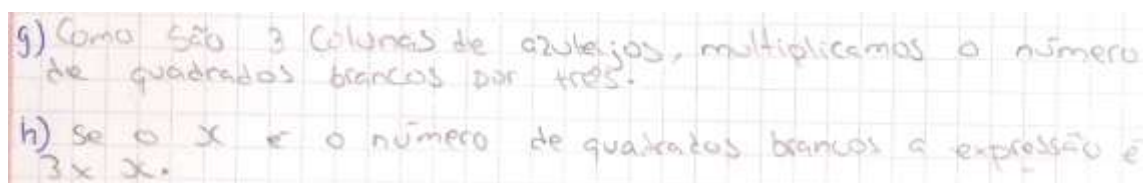 g) Como são 3 colunas de azulejos, multiplicamos o número
de quadrados brancos por três.
h) se o x e o número de quadrados brancos a expressão é
3 x x.